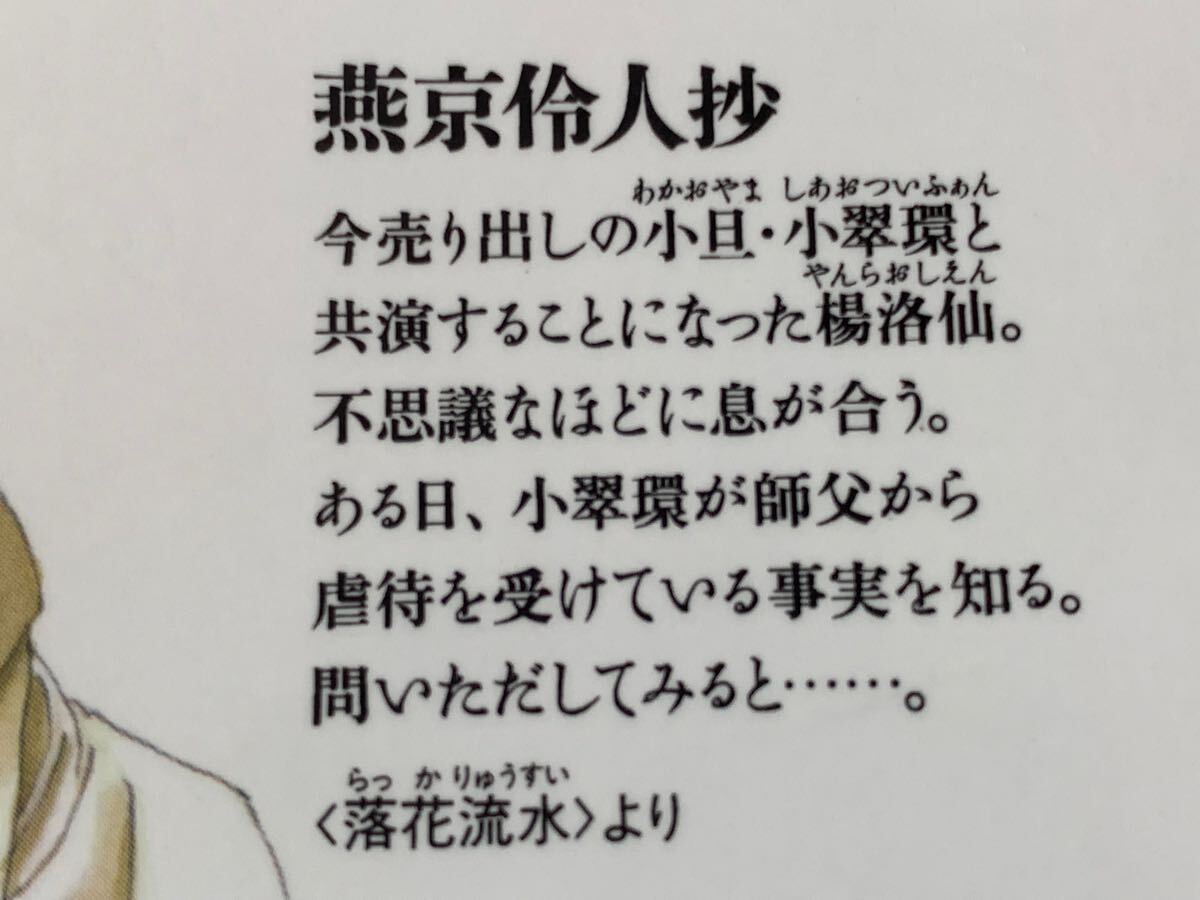 燕京伶人抄
わかおやま しあおついふぁん
今売り出しの小旦・小翠環と
やんらおしえん
共演することになった楊洛仙。
不思議なほどに息が合う。
ある日、小翠環が師父から
虐待を受けている事実を知る。
問いただしてみると……。
らっかりゅうすい
〈落花流水〉より